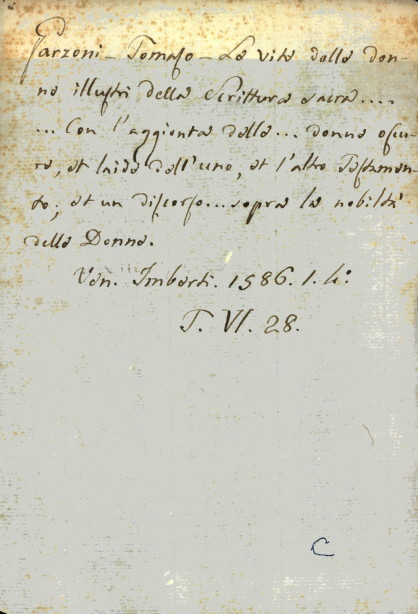 Garzoni - Tomaso - Le vite delle don-
ne illustri della Scrittura sacra....
... Con l'aggionta delle... donne oscu-
re, et laide dell'uno, et l'altro Testamen-
to; et un discorso... sopra la nobiltà
delle Donne.
Ven. Imberti. 1586. 1. 4º
T. VI. 28.
C